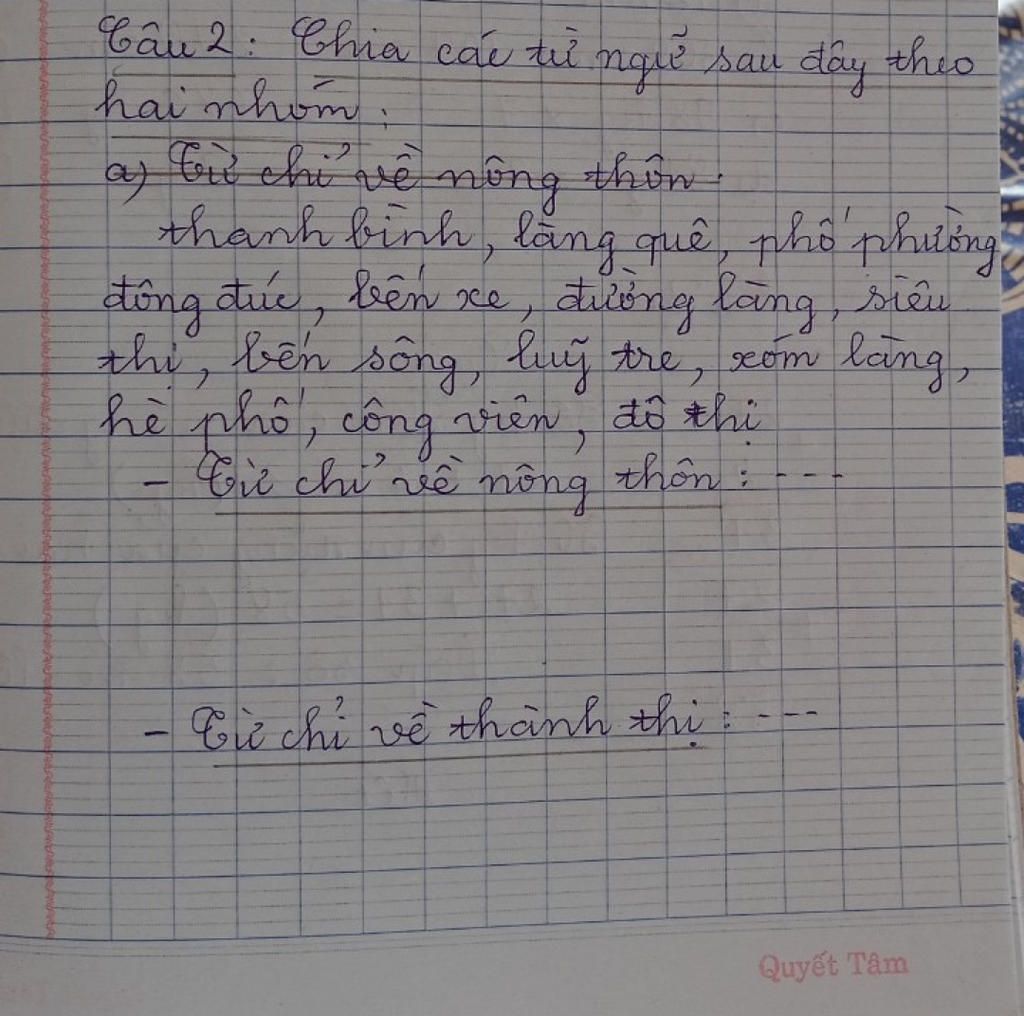 Câu 2: Chia các từ ngữ sau đây theo
hai nhóm:
a) Từ chỉ về nông thôn.
thanh bình, làng quê, phố phường
đông đúc, bến xe, đường làng, siêu
thị, bến sông, luỹ tre, xóm làng,
hè phố, công viên, đô thị
- Từ chỉ về nông thôn: ---
- Từ chỉ về thành thị: ---
Quyết Tâm